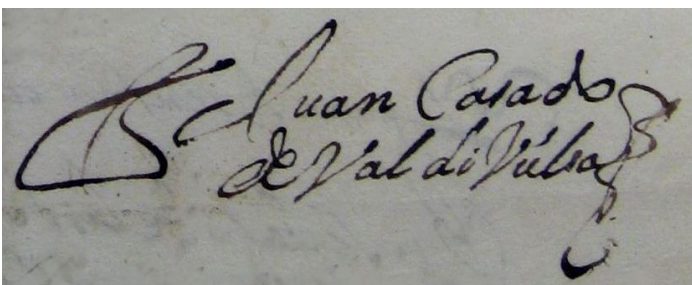 Juan Casado
de Valdivielso